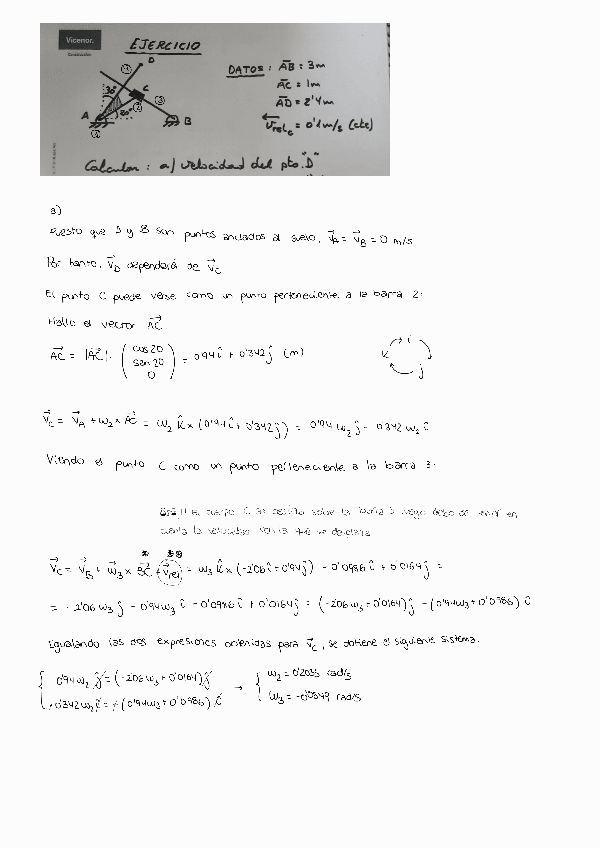 Vicenor.
EJERCICIO
D
DATOS : AB = 3m
AC = 1m
AD = 2'4m
V rel c = 0'1 m/s (cte)
30°
C
A
20°
B
Calcular : a) Velocidad del pto. "D"
a)
Puesto que A y B son puntos anclados al suelo, VA = VB = 0 m/s
Por tanto, VD dependerá de VC
El punto C puede verse como un punto perteneciente a la barra 2:
Hallo el vector AC.
AC = |AC| · ( cos 20
sen 20
0 ) = 0'94 î + 0'342 ĵ (m)
i
k
j
VC = VA + ω2 x AC = ω2 k̂ x (0'94 î + 0'342 ĵ) = 0'94 ω2 ĵ - 0'342 ω2 î
Viendo el punto C como un punto perteneciente a la barra 3:
el cuerpo C se desliza sobre la barra 3 luego debo de tener en
cuenta la velocidad con la que se desplaza
* **
VC = VB + ω3 x BC + Vrel = ω3 k̂ x (-2'06 î + 0'94 ĵ) - 0'0986 î + 0'0164 ĵ =
= -2'06 ω3 ĵ - 0'94 ω3 î - 0'0986 î + 0'0164 ĵ = (-2'06 ω3 + 0'0164) ĵ - (0'94 ω3 + 0'0986) î
Igualando las dos expresiones obtenidas para VC, se obtiene el siguiente sistema.
0'94 ω2 ĵ = (-2'06 ω3 + 0'0164) ĵ → ω2 = 0'2033 rad/s
-0'342 ω2 î = -(0'94 ω3 + 0'0986) î ω3 = -0'0849 rad/s